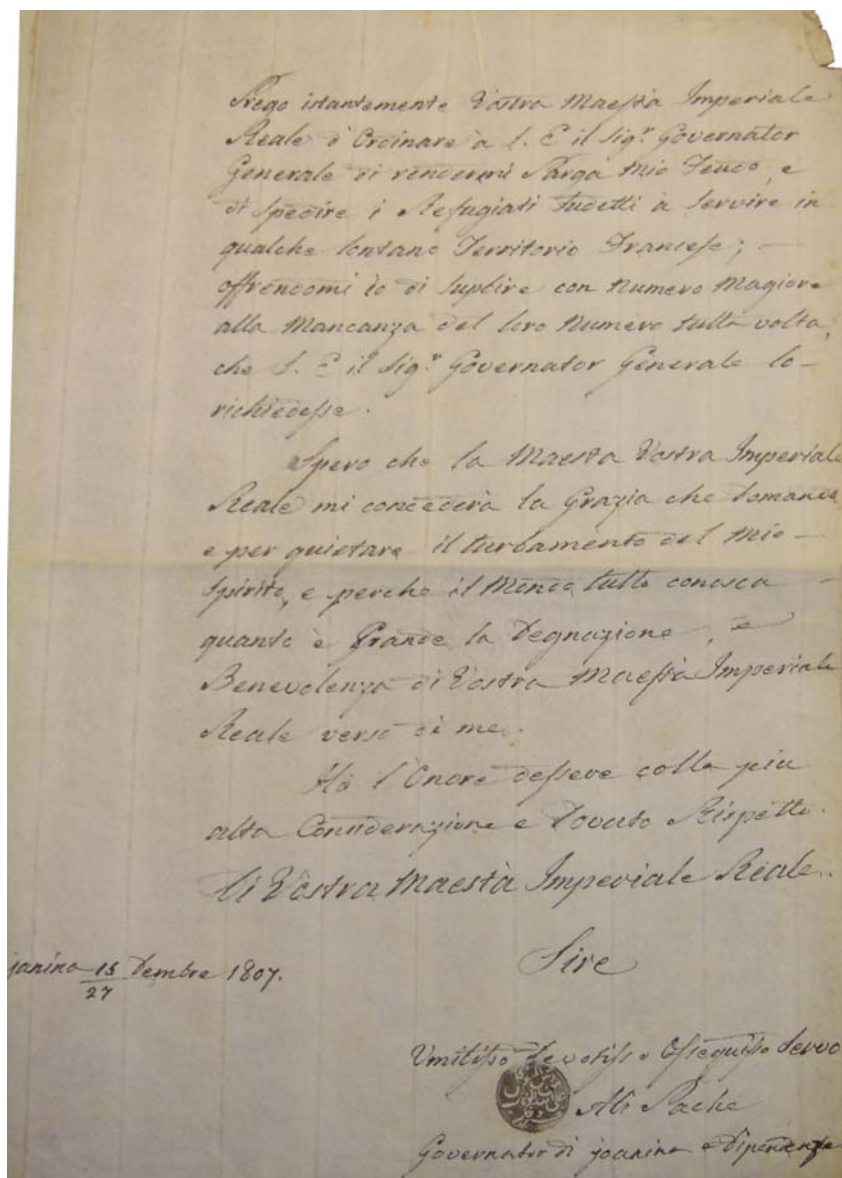 Prego istantemente Vostra Maestà Imperiale
Reale d'Ordinare à S. E il Sigr Governator
Generale di rendermi Parga Mio Feudo, e
di spedire i Refugiati sudetti à servire in
qualche lontano Territorio Francese; –
offrendomi io di suplire con Numero Magiore
alla Mancanza del loro Numero tutta volta,
che S. E il Sigr Governator Generale lo –
richiedesse.
Spero che la Maestà Vostra Imperiale
Reale mi concederà la Grazia che domando
e per quietare il turbamento del Mio –
spirito, e perche il Mondo tutto conosca –
quanto è Grande la Degnazione, e
Benevolenza di Vostra Maestà Imperiale
Reale verso di me.
Hò l'Onore dessere colla piu
alta Considerazione e Dovuto Rispetto.
Di Vostra Maestà Imperiale Reale.
Sire
janina 15/27 Xembre 1807.
Umilisso Devotisso Ossequisso Servo
Alì Pacha
Governator di joanina e Dipendenze